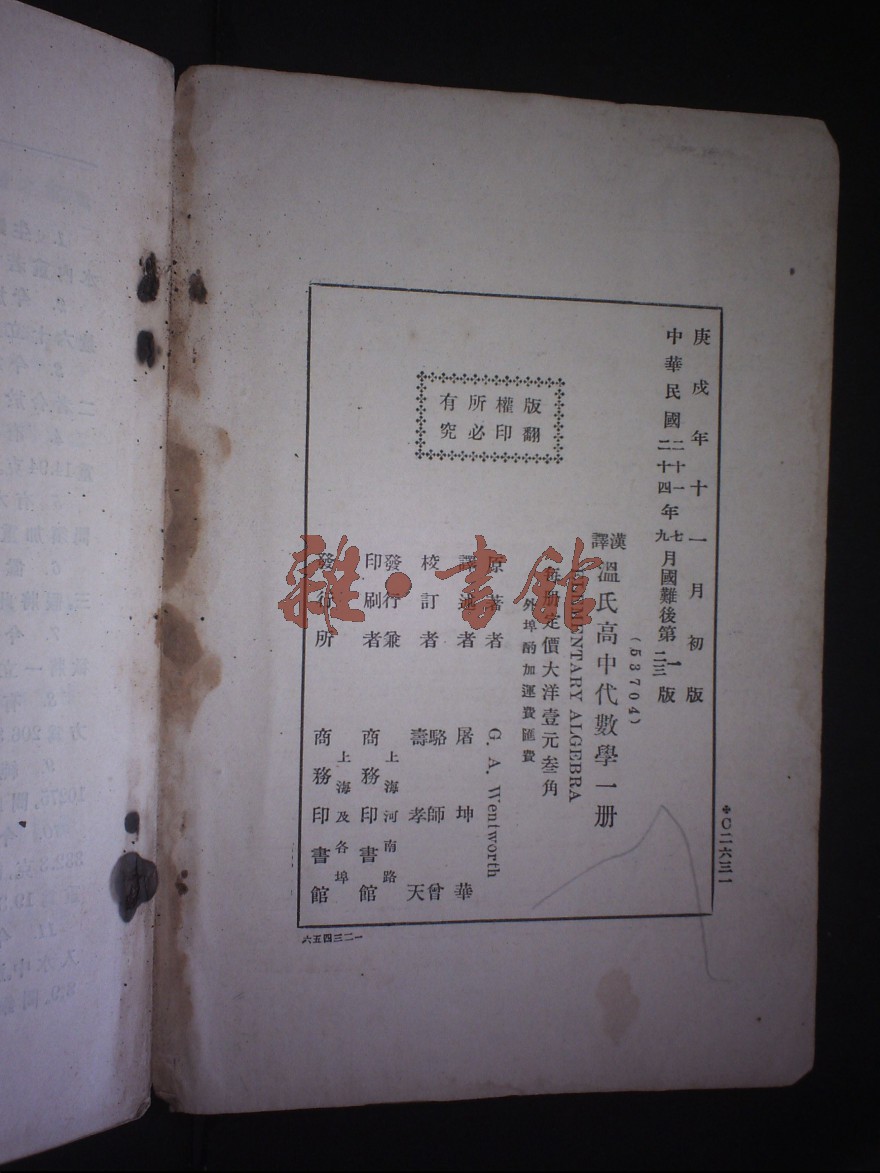 庚戌年十一月初版
中華民國二十一年七月國難後第一版
中華民國二十四年九月國難後第二三版
(53704)
漢譯溫氏高中代數學一册
ELEMENTARY ALGEBRA
每册定價大洋壹元叁角
外埠酌加運費匯費
版權所有
翻印必究
原著者 G. A. Wentworth
譯述者 屠坤華
校訂者 駱師曾
壽孝天
發行兼印刷者 上海河南路
商務印書館
發行所 上海及各埠
商務印書館
C二六三一
六五四三二一
雜·書館